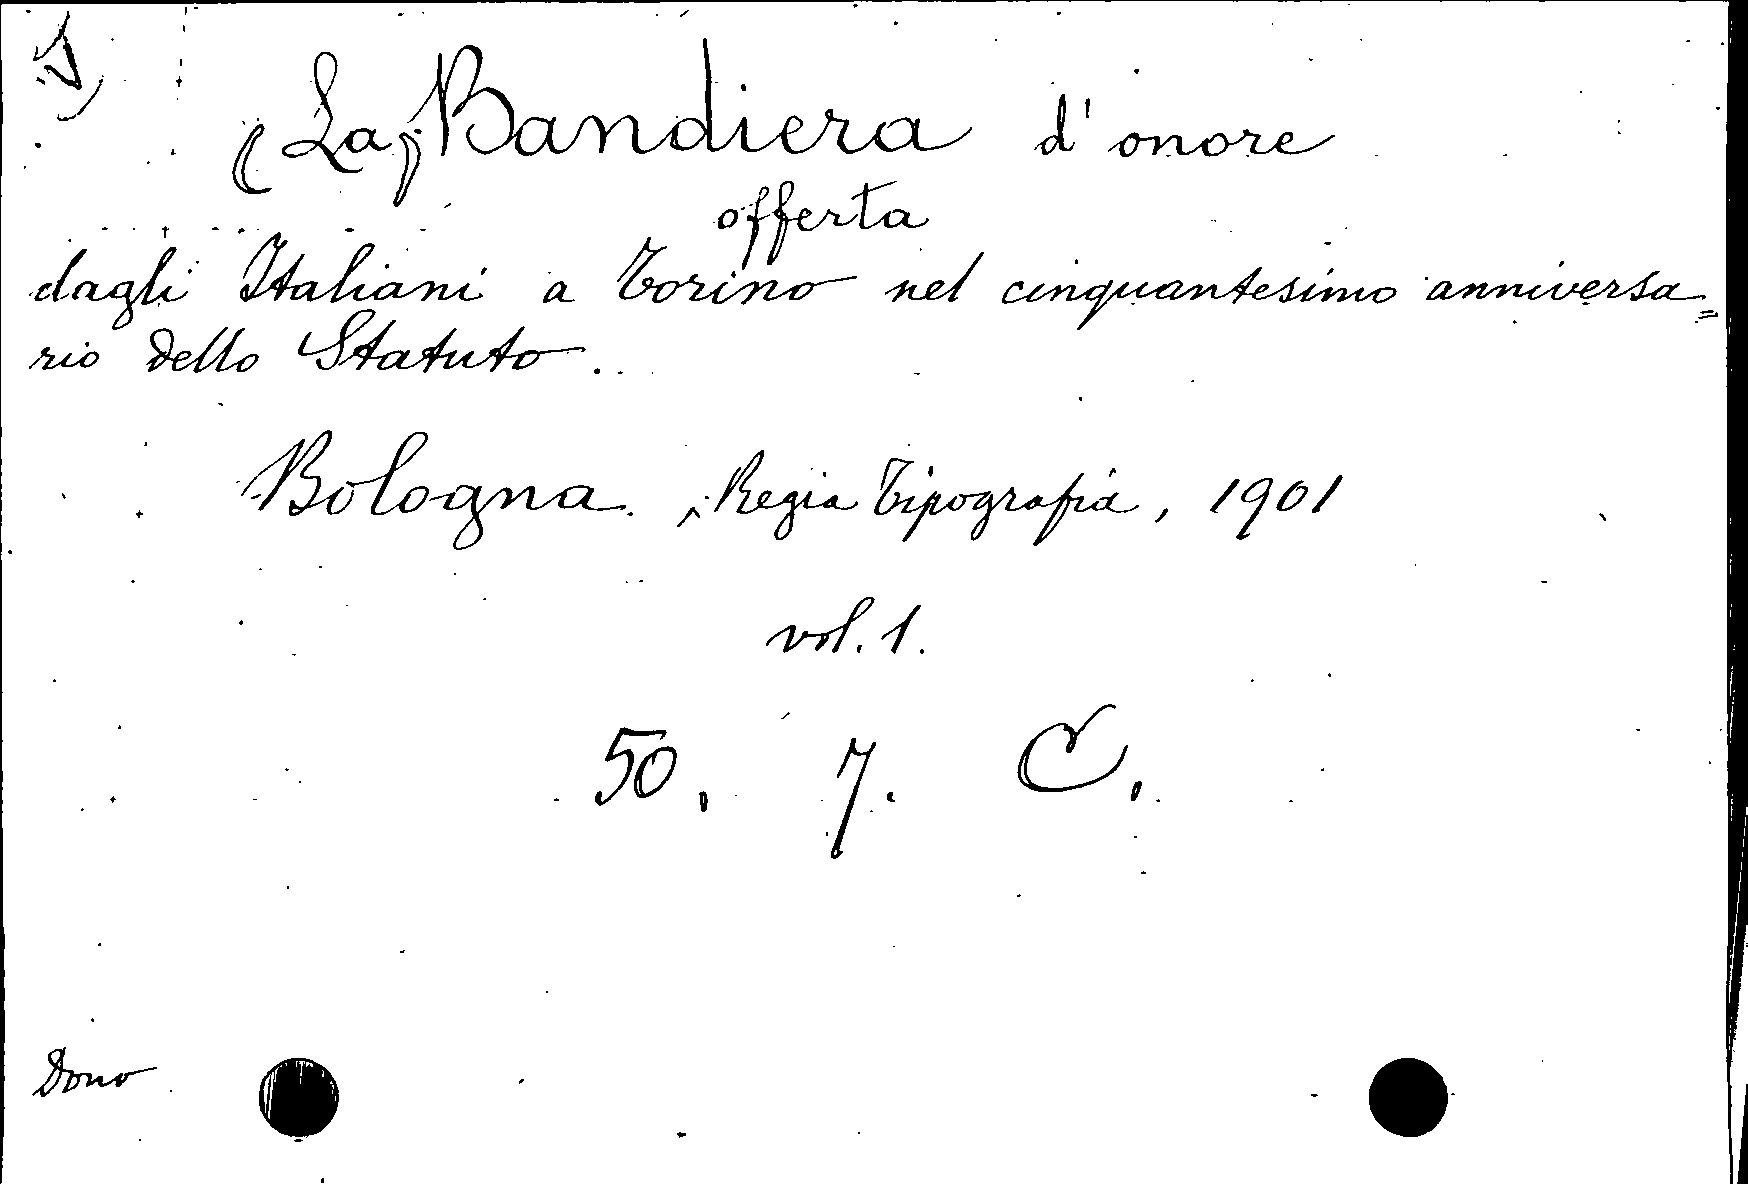 (La) Bandiera d'onore
offerta
dagli Italiani a Torino nel cinquantesimo anniversa=
rio dello Statuto.
Bologna. Regia Tipografia, 1901
vol. 1.
50. 7. C.
Dono